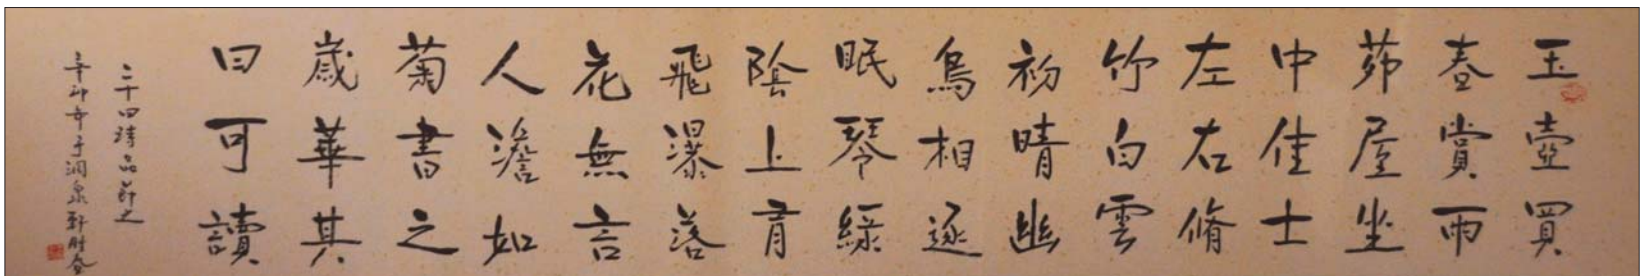 玉壺買
春賞雨
茆屋坐
中佳士
左右脩
竹白雲
初晴幽
鳥相逐
眠琴綠
陰上有
飛瀑落
花無言
人澹如
菊書之
歲華其
曰可讀
二十四詩品節之
辛卯年于润泉軒